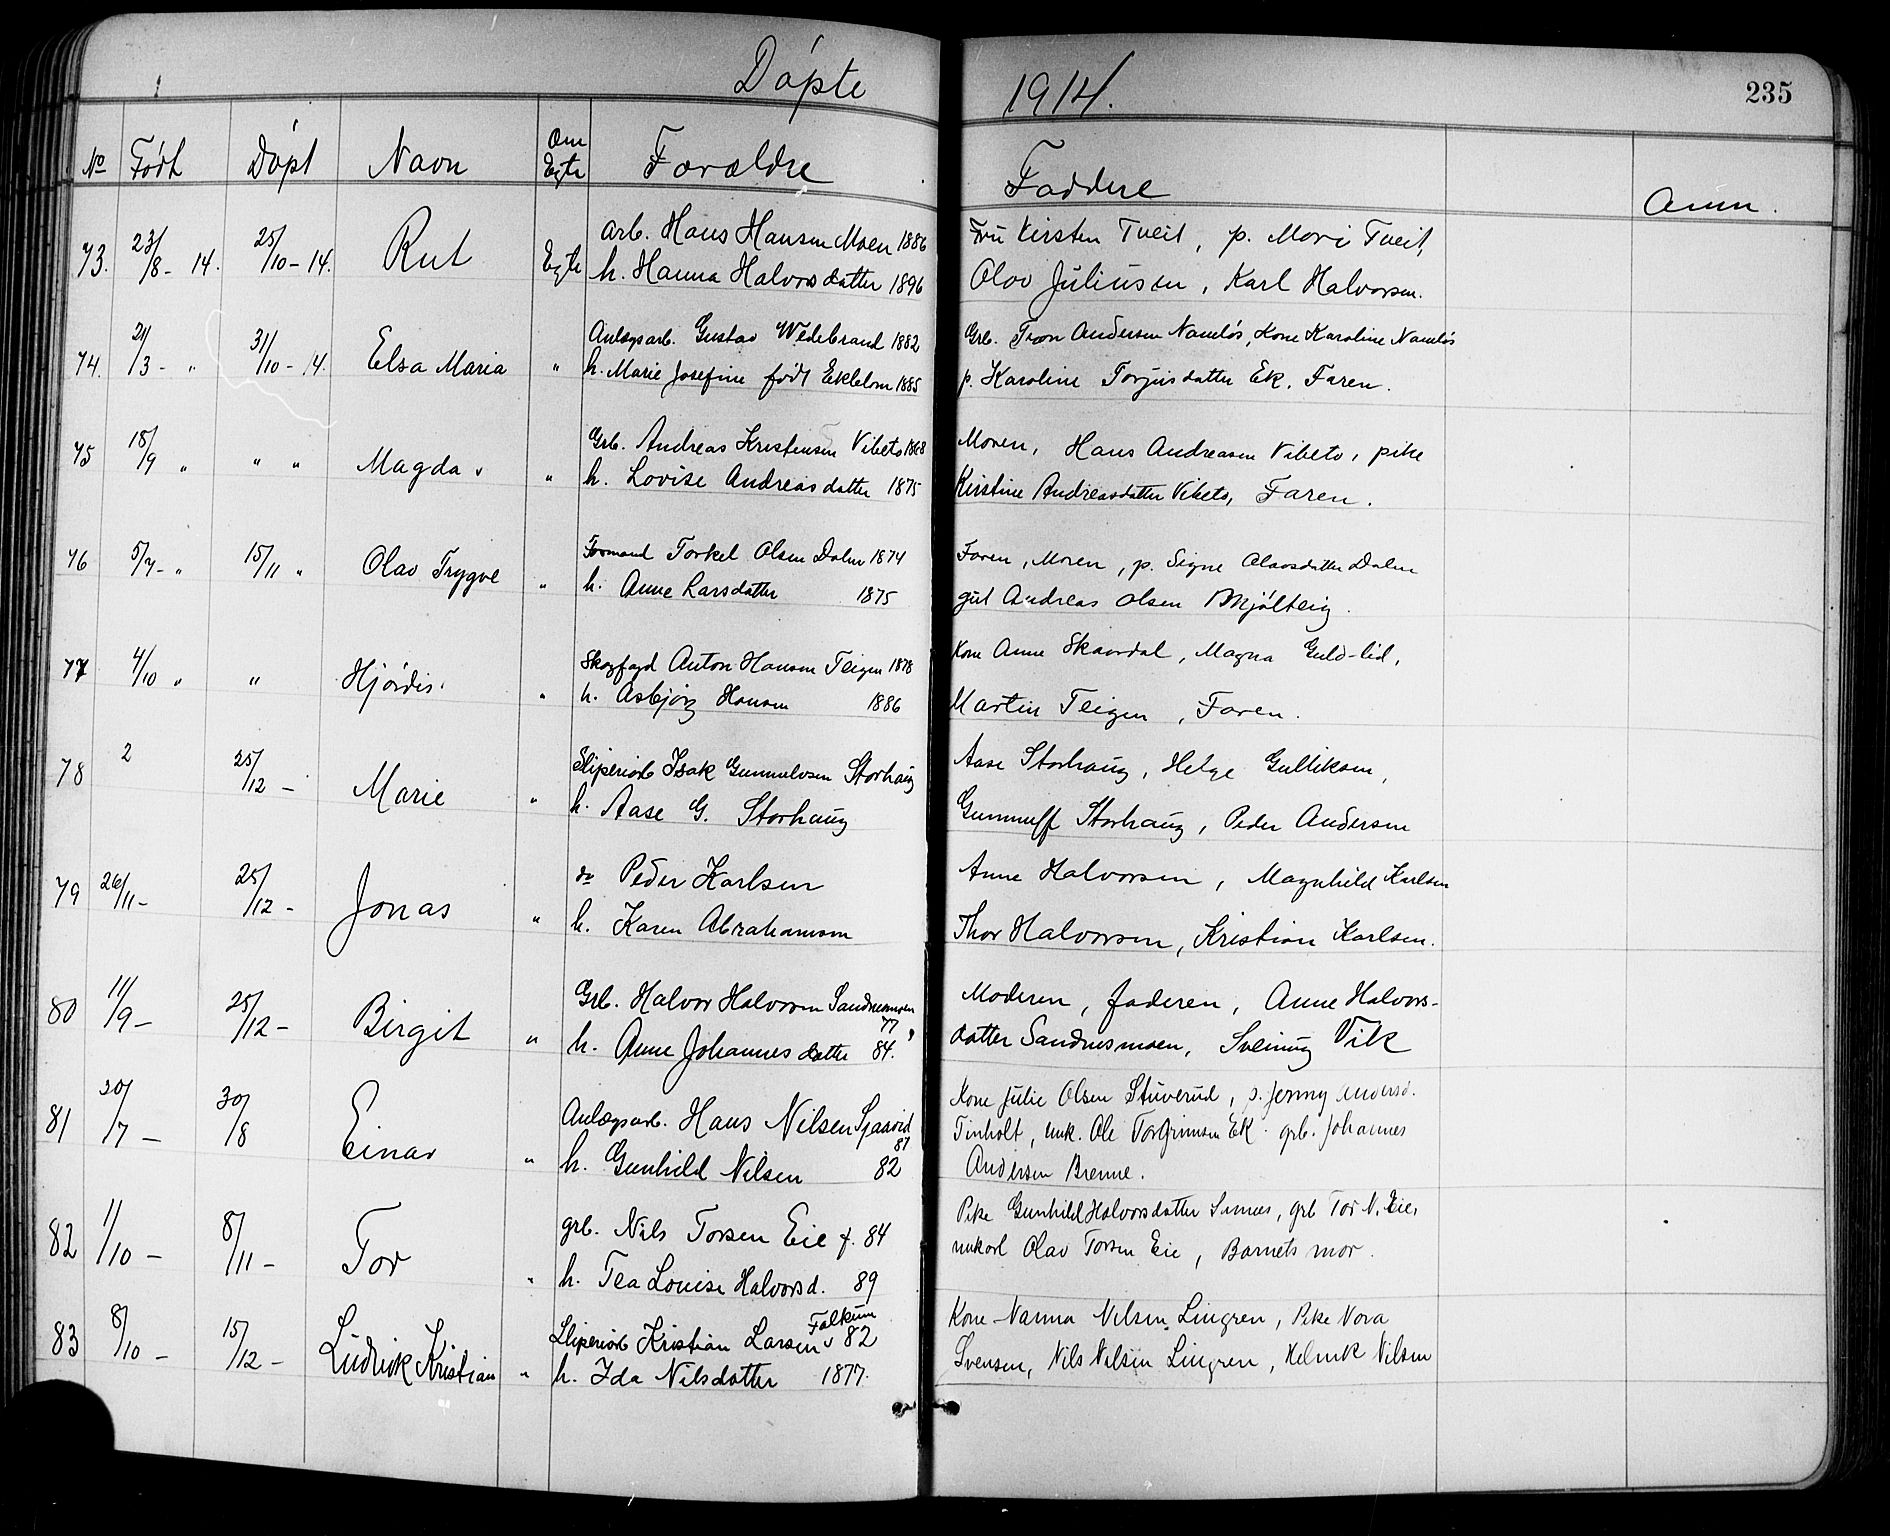 Döpte 1914.
235
No Födt Döpt Navn Om Egte Foræeldre Faddere Anm.
73. 23/8 - 14. 25/10 - 14. Rut Egte arb. Hans Hansen Moen 1886 Fru Kirsten Tveit, p. Mari Tveit,
h. Hanna Halvorsdatter 1896 Olav Juliusen, Karl Halvorsen.
74. 21/3 - " 31/10 - 14. Elsa Maria " Anlægsarb. Gustav Wedebrand 1882 Grb. Tron Andersen Namløs, Kone Karoline Namløs
h. Marie Josefine født Ekblom 1885 p. Karoline Torjusdatter Ek. Faren.
75 18/9 " " " Magda " Grb. Andreas Kristensen Vibeto 1868 Moren, Hans Andreasen Vibeto, pike
h. Lovise Andreasdatter 1875 Kirstine Andreasdatter Vibeto, Faren.
76 5/7 - " 15/11 " Olav Trygve " Formand Torkel Olsen Dalen 1874 Faren, Moren, p. Signe Olavsdatter Dalen
h. Anne Larsdatter 1875 gut Andreas Olsen Mjølteig.
77 4/10 " " Hjørdis. " Skogfogd Anton Hansen Teigen 1878 Kone Anne Skaardal, Magna Guld-lid,
h. Asbjørg Hansen 1886 Martin Teigen, Faren.
78 2 25/12 - Marie " Sliperiarb Isak Gunnulvsen Storhaug Aase Storhaug, Helge Gulliksen,
h. Aase G. Storhaug Gunnulf Storhaug, Peder Andersen
79 26/11 - 25/12 - Jonas " do Peder Karlsen Anne Halvorsen, Magnhild Karlsen
h. Karen Abrahamsen Thor Halvorsen, Kristian Karlsen.
80 11/9 - 25/12 - Birgit " Grb. Halvor Halvorsen Sandnesmoen 77, Moderen, faderen, Anne Halvors-
h. Anne Johannesdatter 84. datter Sandnesmoen, Sveinung Vik
81 20/7 - 30/8 Einar " Anlægsarb. Hans Nilsen Sjaavid 87 Kone Julie Olsen Stuverud, p. Jenny Andersd.
Tinholt, unk. Ole Torgrimsen Ek. grb. Johannes
h. Gunhild Nilsen 82 Andersen Brenne.
82 1/10 - 8/11 - Tor " grb. Nils Torsen Eie f. 84 Pike Gunhild Halvorsdatter Simes, grb Tor N. Eie,
unkarl Olav Torsen Eie, Barnets mor.
h. Tea Louise Halvorsd. 89
83 8/10 - 15/12 - Ludvik Kristian " Sliperiarb Kristian Larsen Falkum 82 Kone Nanna Nilsen Lingren, Pike Nora
h. Ida Nilsdatter 1877. Svensen, Nils Nilsen Lingren, Helmik Nilsen